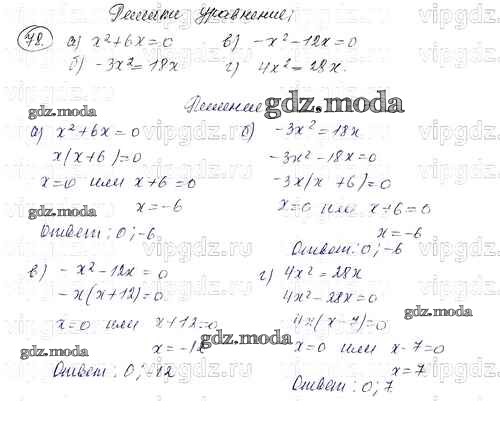 Решить уравнение:
78. а) x²+6x=0 в) -x²-12x=0
б) -3x²=18x г) 4x²=28x.
Решение
gdz.moda
а) x²+6x=0
x(x+6)=0
x=0 или x+6=0
x=-6
Ответ: 0; -6
б) -3x²=18x
-3x²-18x=0
-3x(x+6)=0
x=0 или x+6=0
x=-6
Ответ: 0; -6
в) -x²-12x=0
-x(x+12)=0
x=0 или x+12=0
x=-12
Ответ: 0; -12
г) 4x²=28x
4x²-28x=0
4x(x-7)=0
x=0 или x-7=0
x=7
Ответ: 0; 7
gdz.moda
gdz.moda
gdz.moda
gdz.moda
gdz.moda
vipgdz.ru